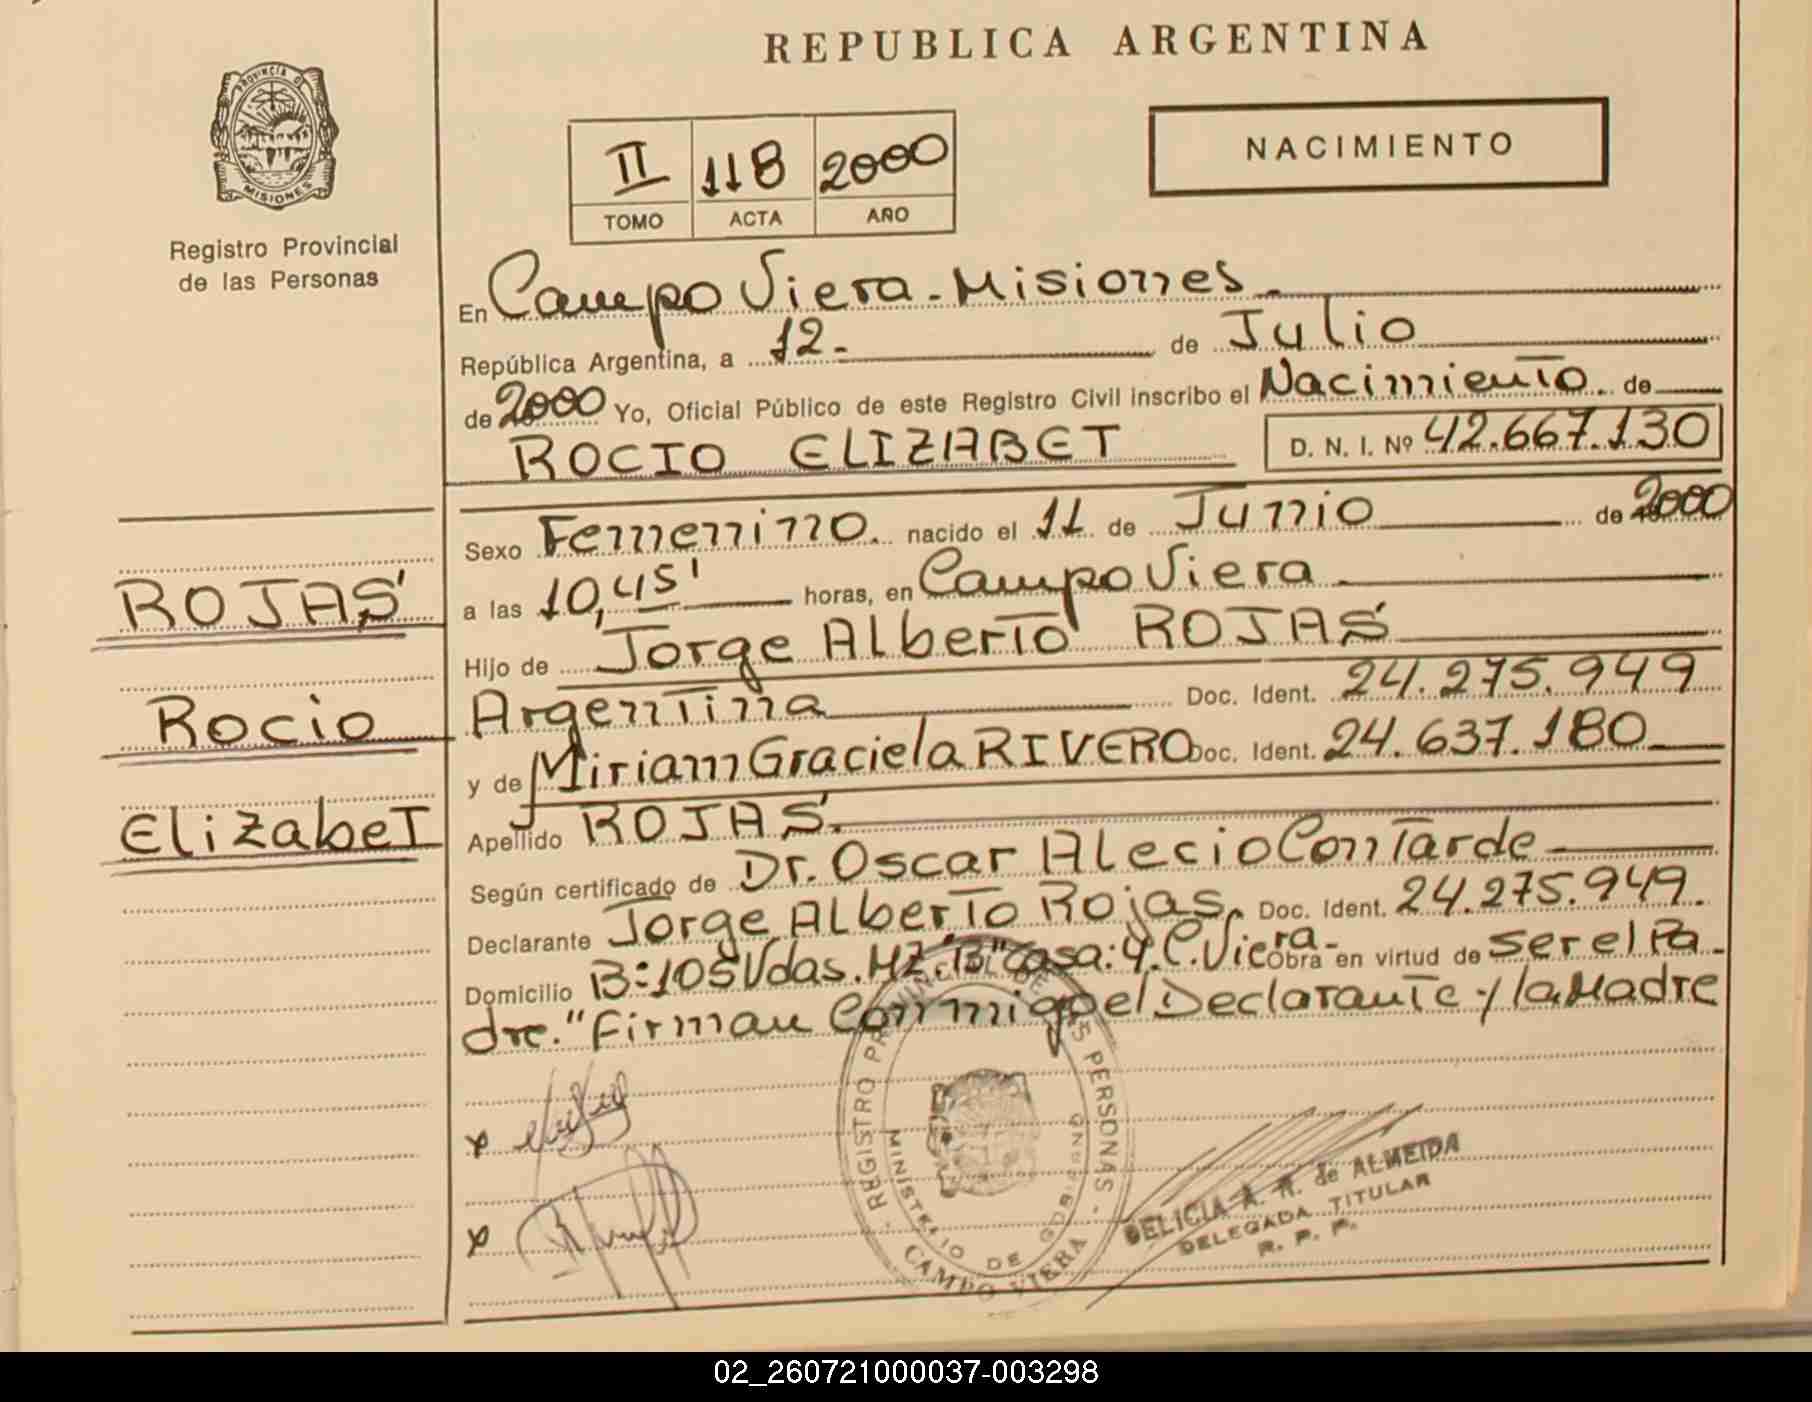 REPUBLICA ARGENTINA
PROVINCIA DE
MISIONES
Registro Provincial
de las Personas
II 118 2000
TOMO ACTA AÑO
NACIMIENTO
En Campo Viera - Misiones -
República Argentina, a 12 - de Julio
de 2000 Yo, Oficial Público de este Registro Civil inscribo el Nacimiento de
ROCIO ELIZABET D. N. I. Nº 42.667.130
Sexo Femenino. nacido el 11 de Junio de 2000
a las 10,45' horas, en Campo Viera
Hijo de Jorge Alberto ROJAS
Argentina Doc. Ident. 24.275.949
y de Miriam Graciela RIVERO Doc. Ident. 24.637.180
Apellido ROJAS.
Según certificado de Dr. Oscar Alecio Contarde
Declarante Jorge Alberto Rojas. Doc. Ident. 24.275.949.
Domicilio B:105 Vdas. MZ."B" Casa:4. C. Viera - Obra en virtud de ser el Pa-
dre." Firman Conmigo el Declarante y la Madre
ROJAS
Rocio
Elizabet
x
x
REGISTRO PROVINCIAL DE LAS PERSONAS
MINISTERIO DE GOBIERNO
CAMPO VIERA
DELICIA A. R. de ALMEIDA
DELEGADA TITULAR
R. P. P.
02_260721000037-003298